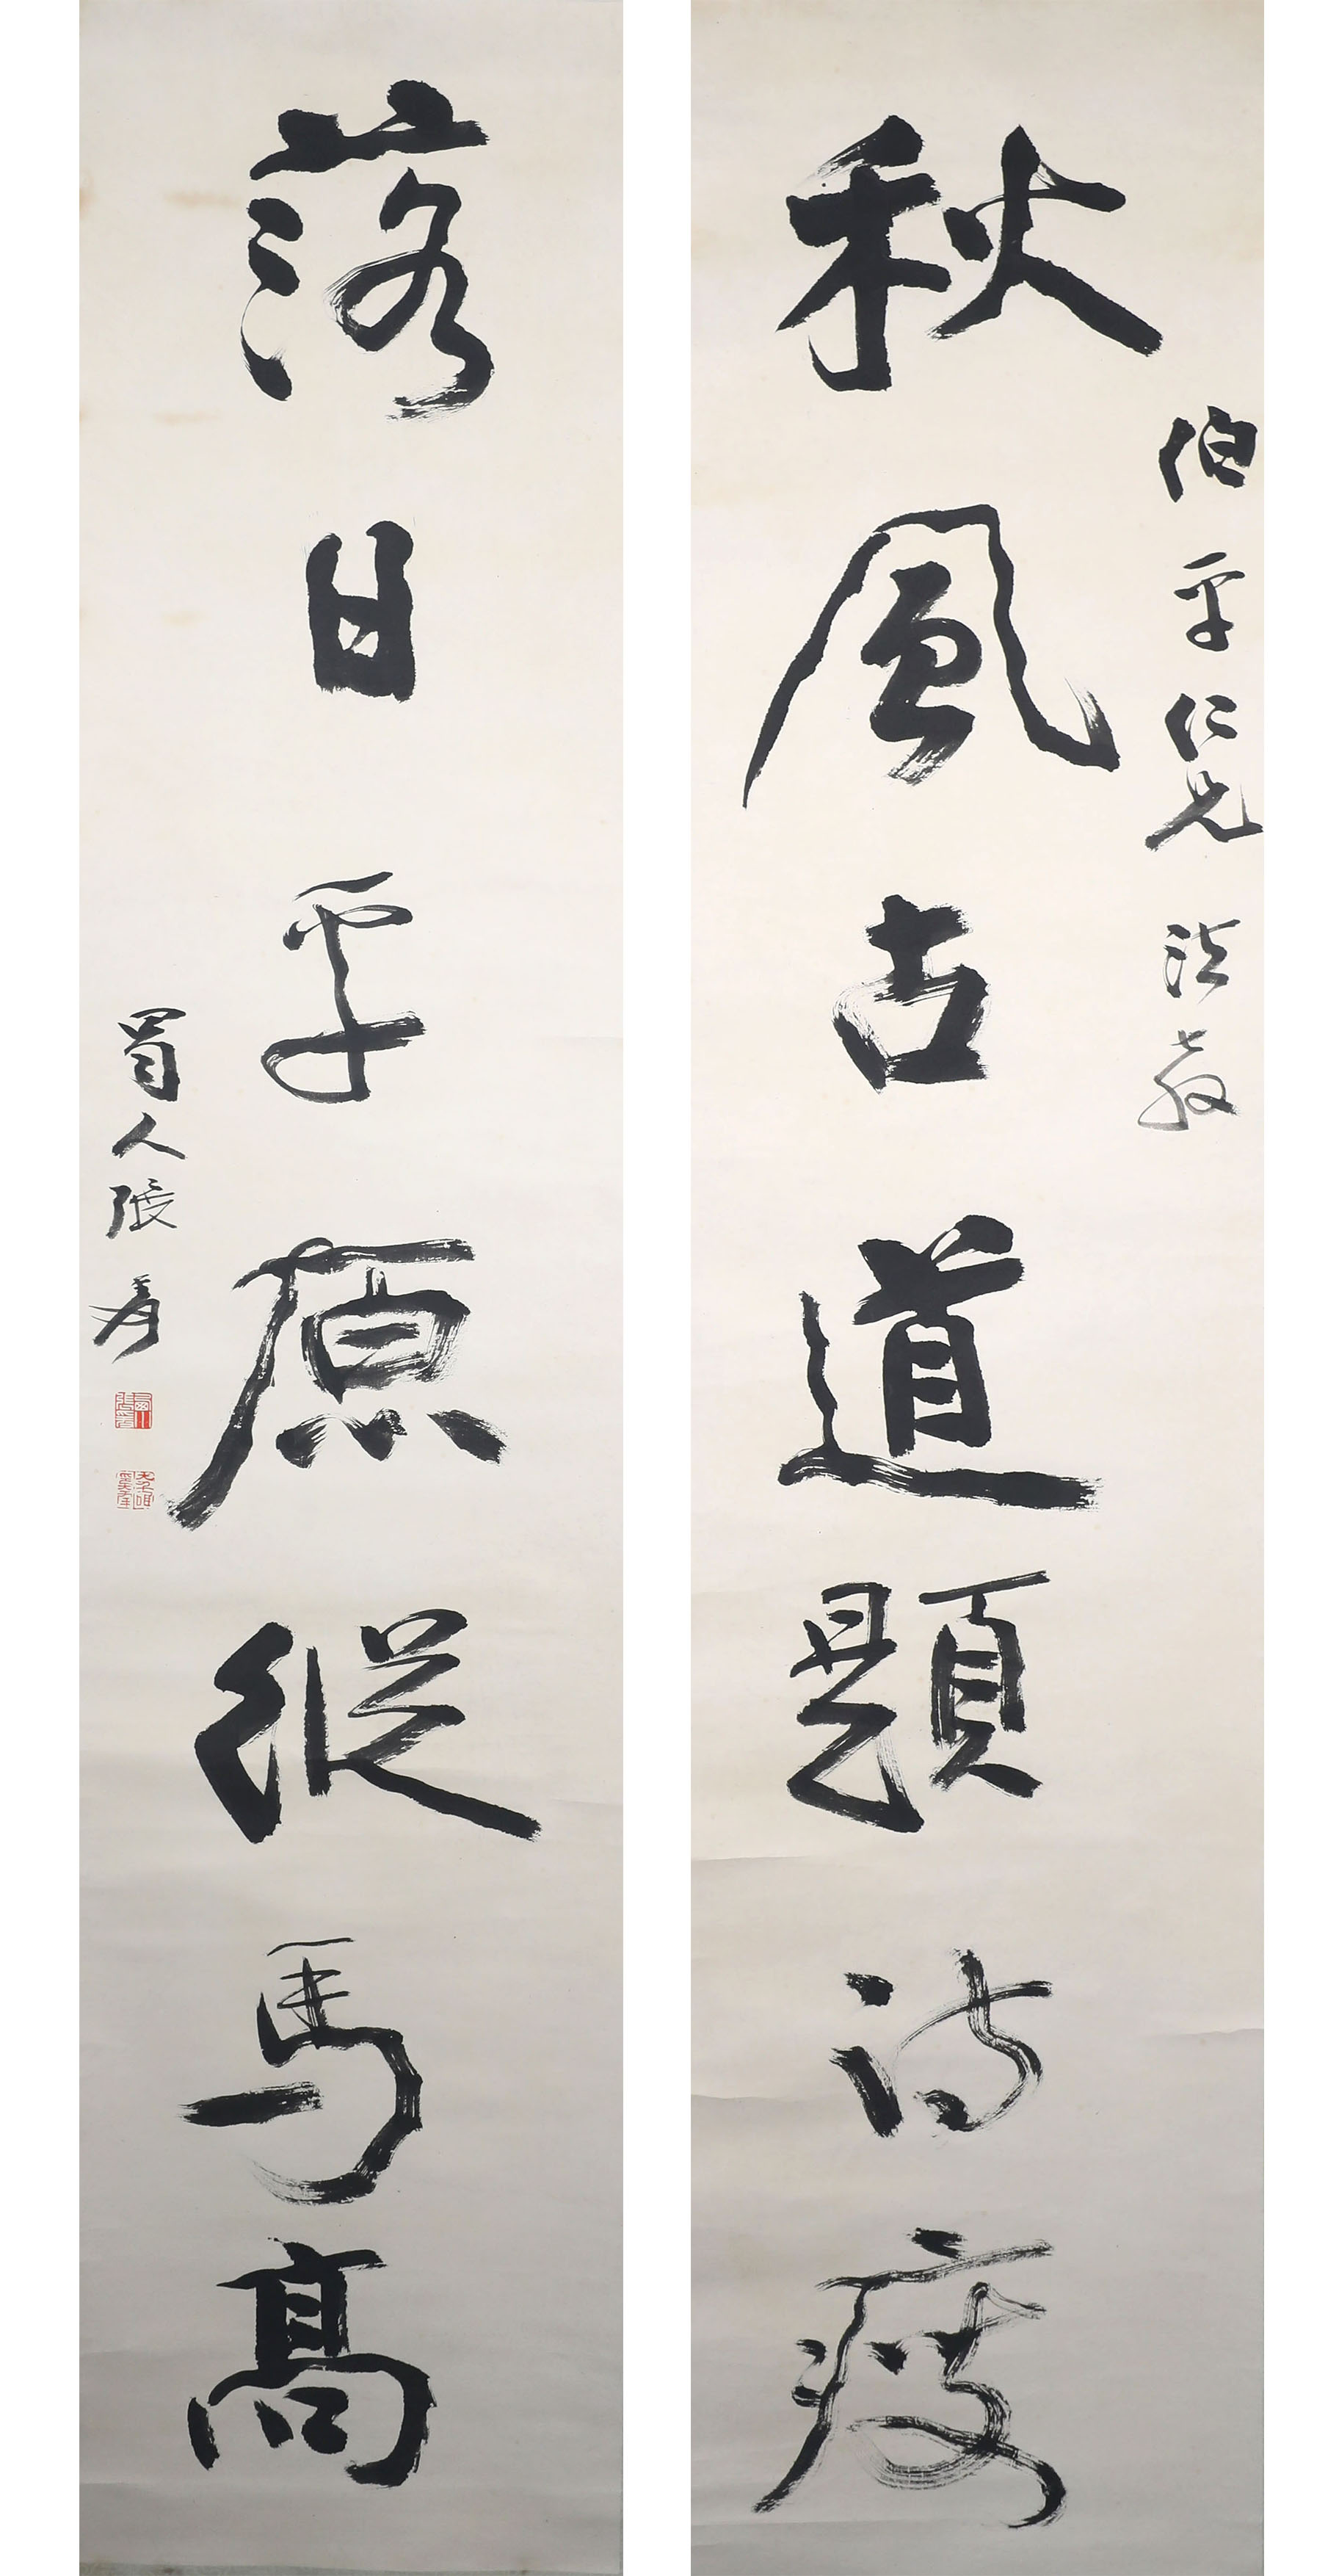 伯平仁兄法教
秋風古道題詩瘦
落日平原縱馬高
蜀人張爰